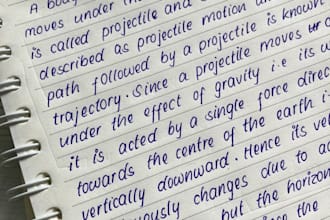 A body
moves under
is called projectile motion
described as projectile motion
path followed by a projectile is known
trajectory. Since a projectile moves
under the effect of gravity i.e its
it is acted by a single force direc
towards the centre of the earth i
vertically downward. Hence its vel
uously changes due to ac
but the horizon
the